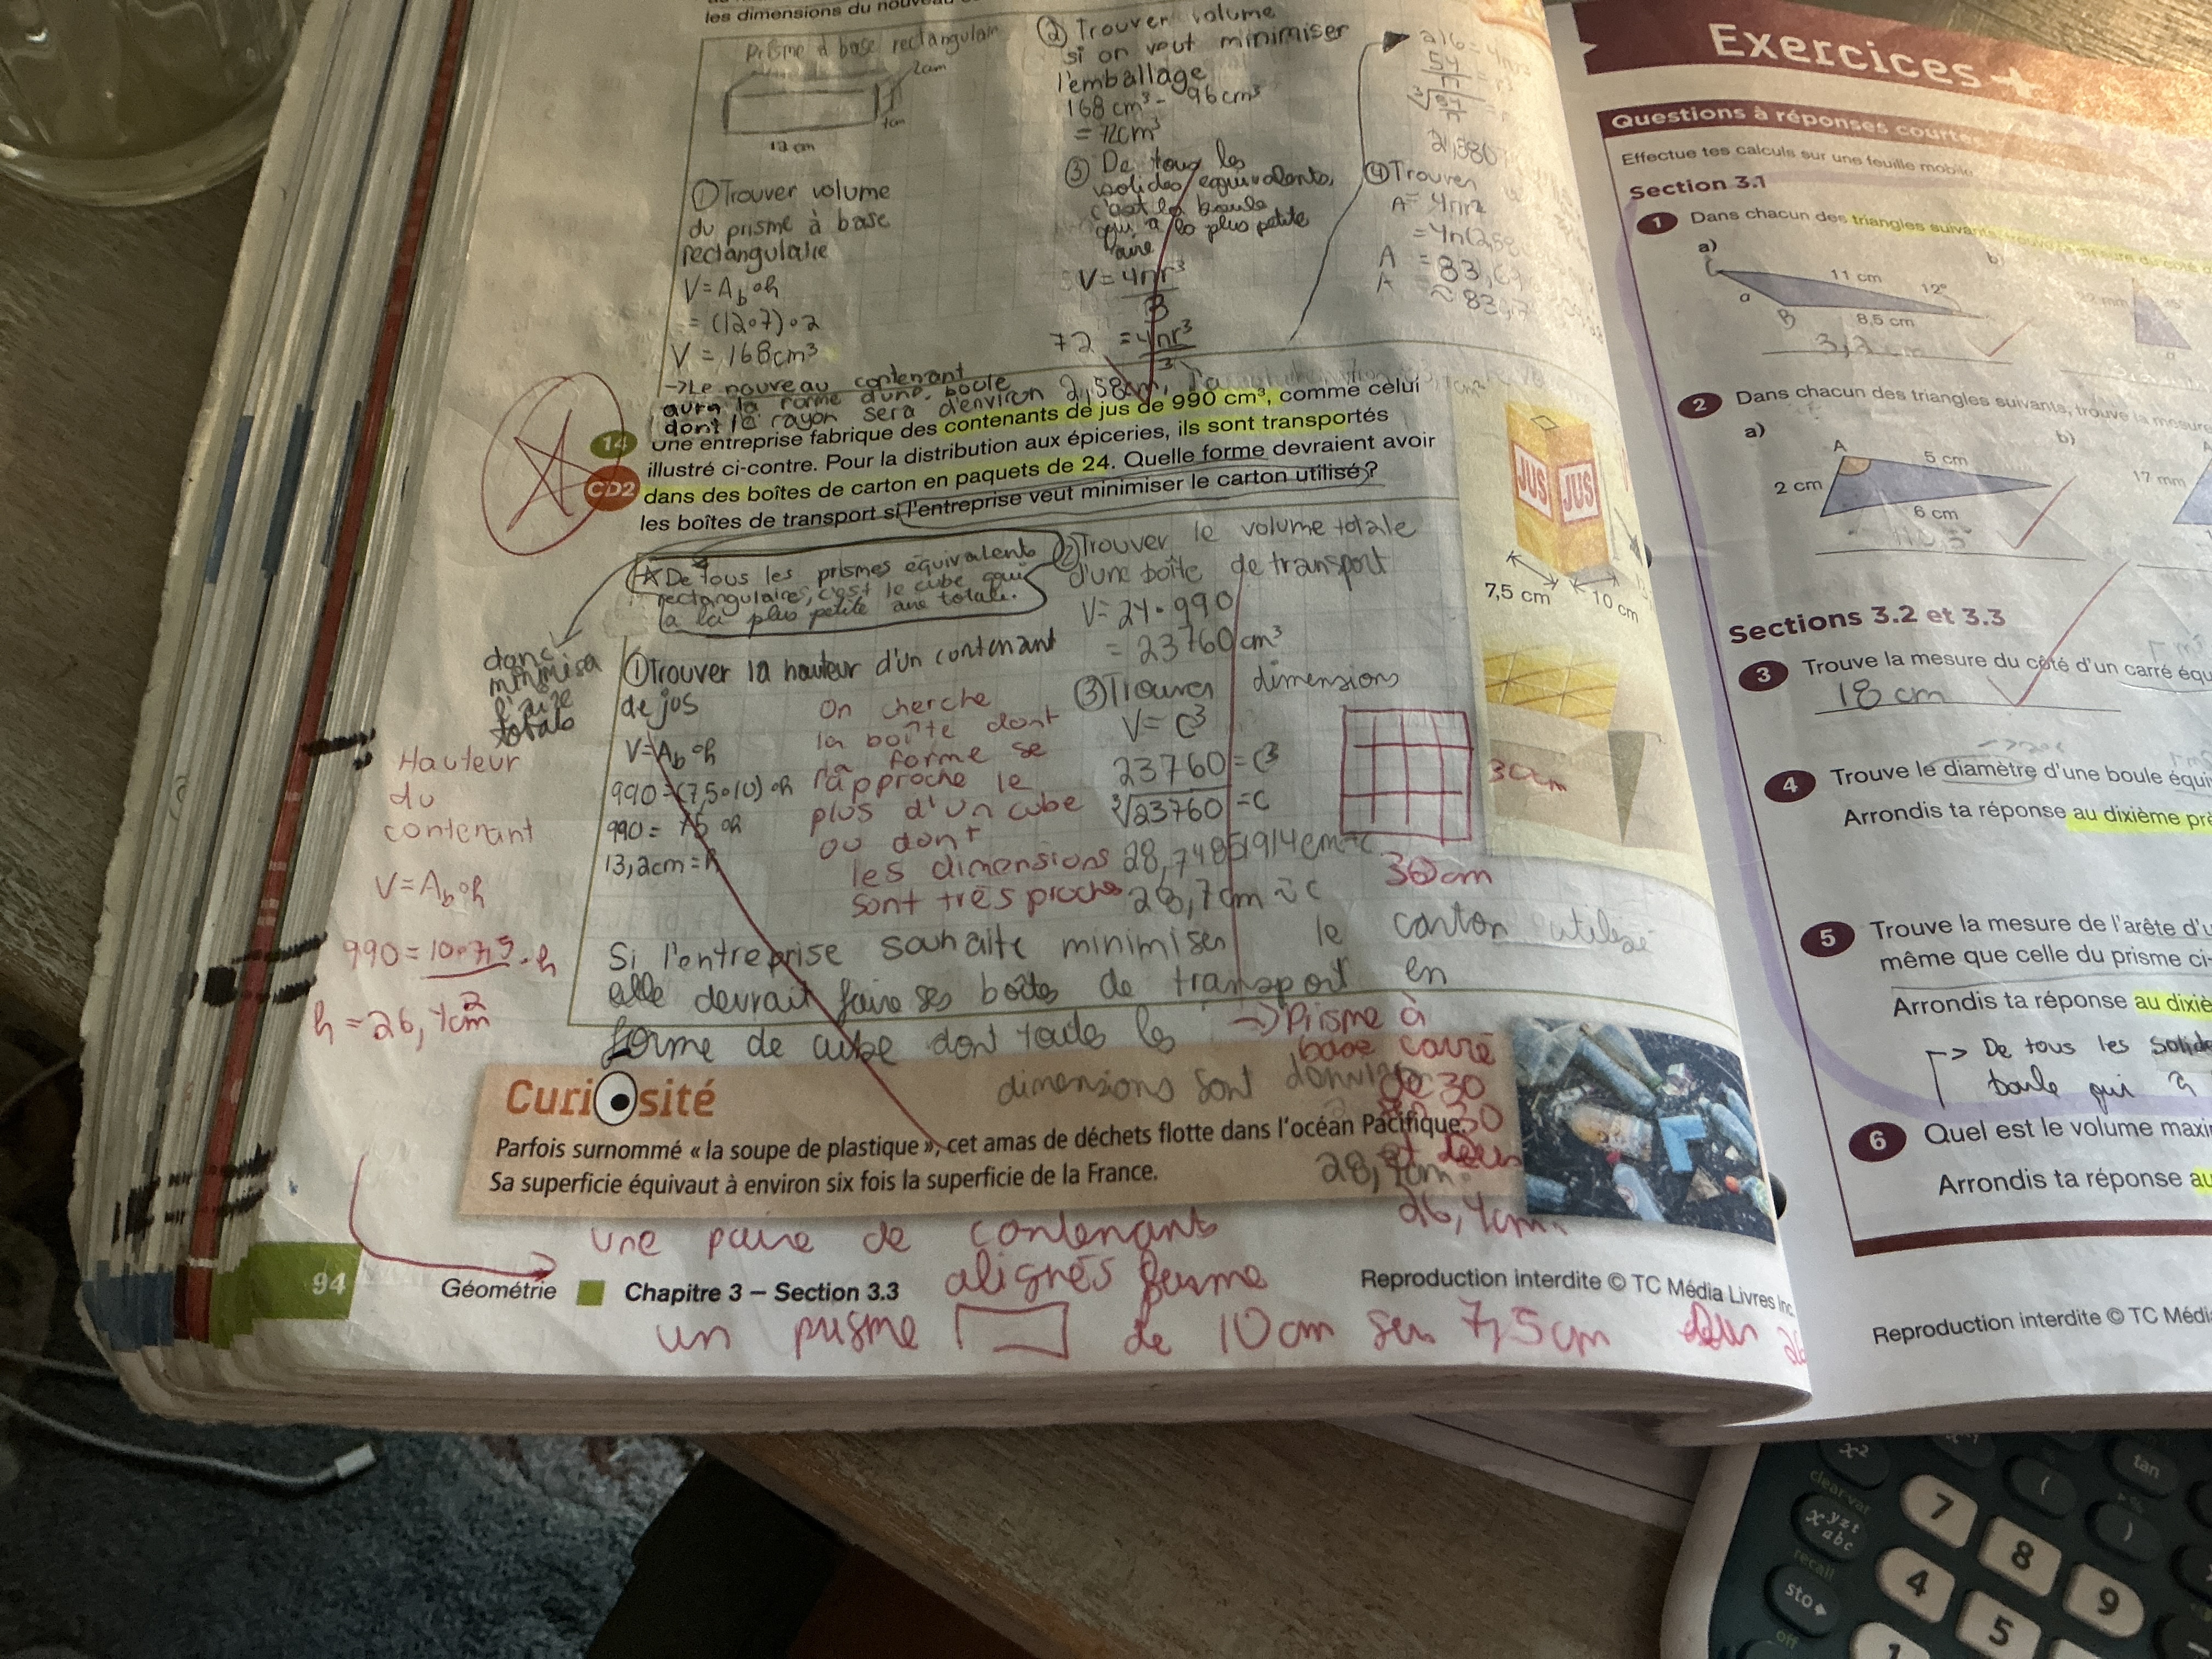 les dimensions du nouveau
Prisme à base rectangulair
2cm
7cm
12 cm
① Trouver volume
du prisme à base
rectangulaire
V = Ab∘h
= (12∘7)∘2
V = 168cm³
→ Le nouveau contenant
aura la forme d'une boule
dont le rayon sera d'environ 2,58cm,
② Trouver volume
si on veut minimiser
l'emballage
168 cm³ - 96 cm³
= 72cm³
③ De tous les
solides équivalents,
c'est la boule
qui a la plus petite
aire
V = 4πr³
3
72 = 4πr³
3
216 = 4πr³
54
π
³√54
π
④ Trouver
A = 4πr²
= 4π(2,58
A = 83,6
A ≈ 83,7
14
CD2
Une entreprise fabrique des contenants de jus de 990 cm³, comme celui
illustré ci-contre. Pour la distribution aux épiceries, ils sont transportés
dans des boîtes de carton en paquets de 24. Quelle forme devraient avoir
les boîtes de transport si l'entreprise veut minimiser le carton utilisé ?
JUS JUS
7,5 cm
10 cm
☆ De tous les prismes équivalents
rectangulaires, c'est le cube qui
a la plus petite aire totale.
donc
minimisa
l'aire
totale
① Trouver la hauteur d'un contenant
de jus
V = Ab∘h
990 = (7,5∘10)∘h
990 = 75∘h
13,2cm = h
On cherche
la boîte dont
la forme se
rapproche le
plus d'un cube
ou dont
les dimensions
sont très proche
② Trouver le volume totale
d'une boîte de transport
V = 24∘990
= 23760 cm³
③ Trouver dimensions
V = C³
23760 = C³
³√23760 = C
28,74851914cm = C
28,7cm ≈ C
30cm
30cm
Hauteur
du
contenant
V = Ab∘h
990 = 10∘7,5 ∘h
2
h = 26,4cm
Si l'entreprise souhaite minimiser le carton utilisé
elle devrait faire ses boîtes de transport en
forme de cube dont toute les
dimensions sont d'environ
28,7cm.
→ Prisme à
base carré
de 30
sur 30
et sur
26,4cm.
Curiosité
Parfois surnommé « la soupe de plastique », cet amas de déchets flotte dans l'océan Pacifique.
Sa superficie équivaut à environ six fois la superficie de la France.
une paire de contenants
alignés forme
un prisme de 10cm sur 7,5cm sur 26
94
Géométrie Chapitre 3 – Section 3.3
Reproduction interdite © TC Média Livres Inc.
Exercices +
Questions à réponses courtes
Effectue tes calculs sur une feuille mobile.
Section 3.1
1 Dans chacun des triangles suivants, trouve la mesure du côté
a)
b)
C
11 cm
12°
a
B
8,5 cm
3,2 cm
2 Dans chacun des triangles suivants, trouve la mesure
a)
b)
A
5 cm
2 cm
6 cm
17 mm
Sections 3.2 et 3.3
3 Trouve la mesure du côté d'un carré équ
18 cm
4 Trouve le diamètre d'une boule équi
Arrondis ta réponse au dixième pr
5 Trouve la mesure de l'arête d'u
même que celle du prisme ci-
Arrondis ta réponse au dixiè
→ De tous les solide
boule qui a
6 Quel est le volume maxi
Arrondis ta réponse au
Reproduction interdite © TC Média
x²
tan
clear var
x yzt abc
recall
sto▸
off
(
)
7
8
9
4
5
1